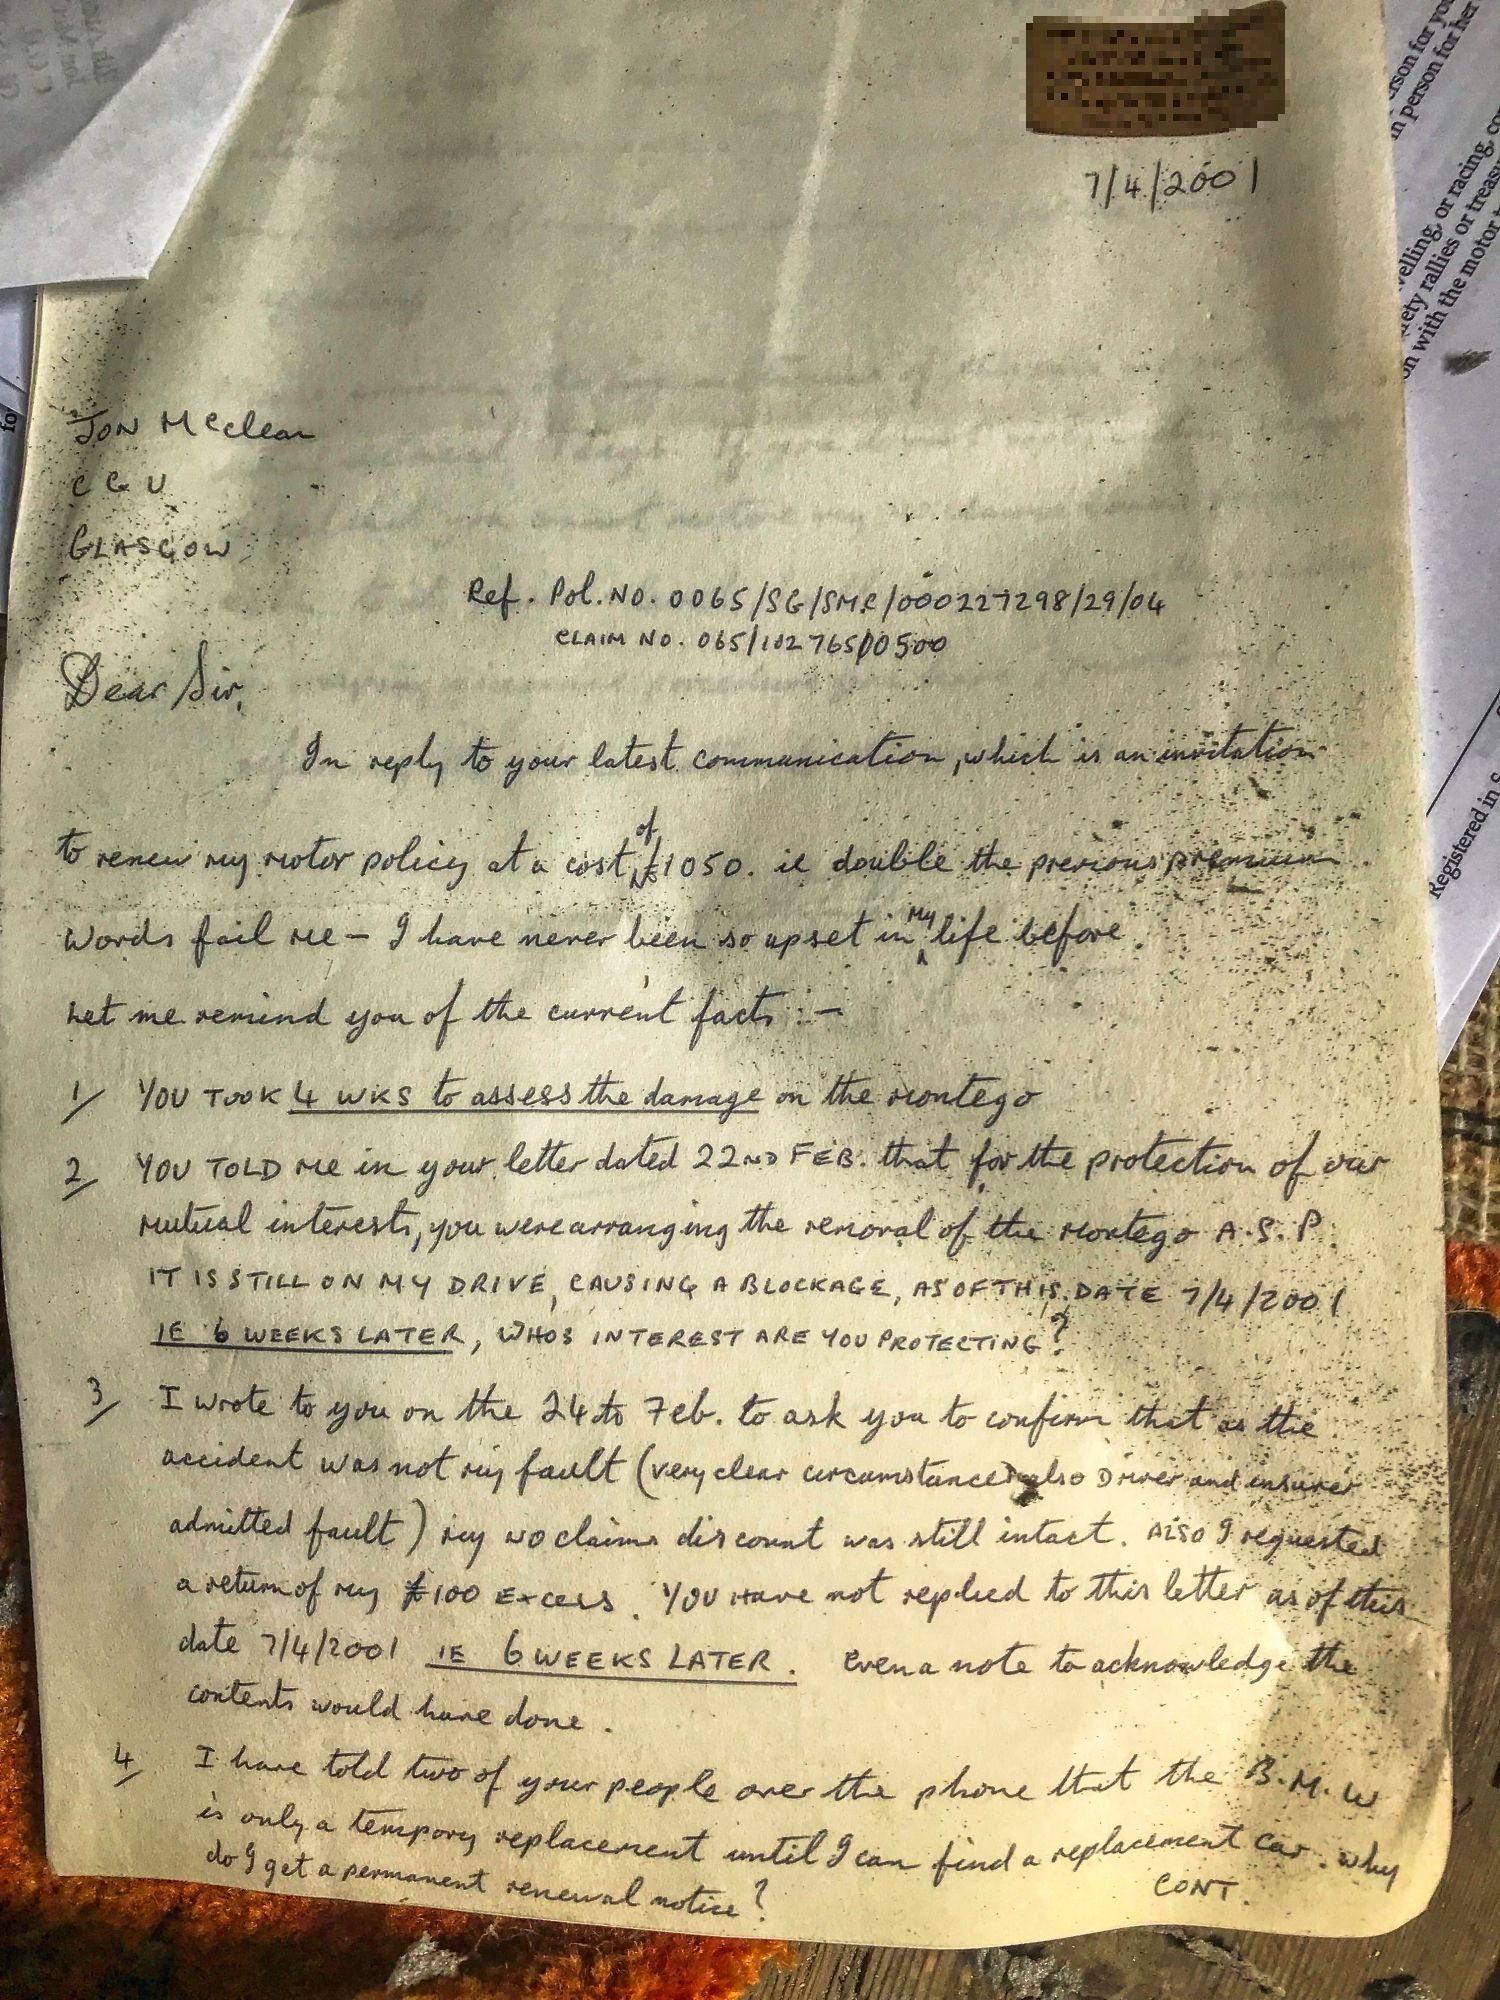 7/4/2001
Jon McClear
CGU
GLASGOW
Ref. Pol. No. 0065/SG/SMC/000227298/29/04
CLAIM NO. 065/10276500500
Dear Sir,
In reply to your latest communication, which is an invitation
to renew my motor policy at a cost of £1050. ie double the previous premium
Words fail me – I have never been so upset in my life before
Let me remind you of the current facts :–
1/ YOU TOOK 4 WKS to assess the damage on the Montego
2/ YOU TOLD me in your letter dated 22ND FEB. that for the protection of our
mutual interests, you were arranging the removal of the Montego A.S.P.
IT IS STILL ON MY DRIVE, CAUSING A BLOCKAGE, AS OF THIS DATE 7/4/2001
IE 6 WEEKS LATER, WHOS INTEREST ARE YOU PROTECTING?
3/ I wrote to you on the 24th Feb. to ask you to confirm that as the
accident was not my fault (very clear circumstances also Driver and insurer
admitted fault) my no claims discount was still intact. Also I requested
a return of my £100 Excess. YOU Have not replied to this letter as of this
date 7/4/2001 IE 6 WEEKS LATER. even a note to acknowledge the
contents would have done.
4/ I have told two of your people over the phone that the B.M.W
is only a tempory replacement until I can find a replacement car. why
do I get a permanent renewal notice?
CONT.
erson for yo
in person for her
velling, or racing, co
ety rallies or treasu
on with the motor t
Registered in S
fo